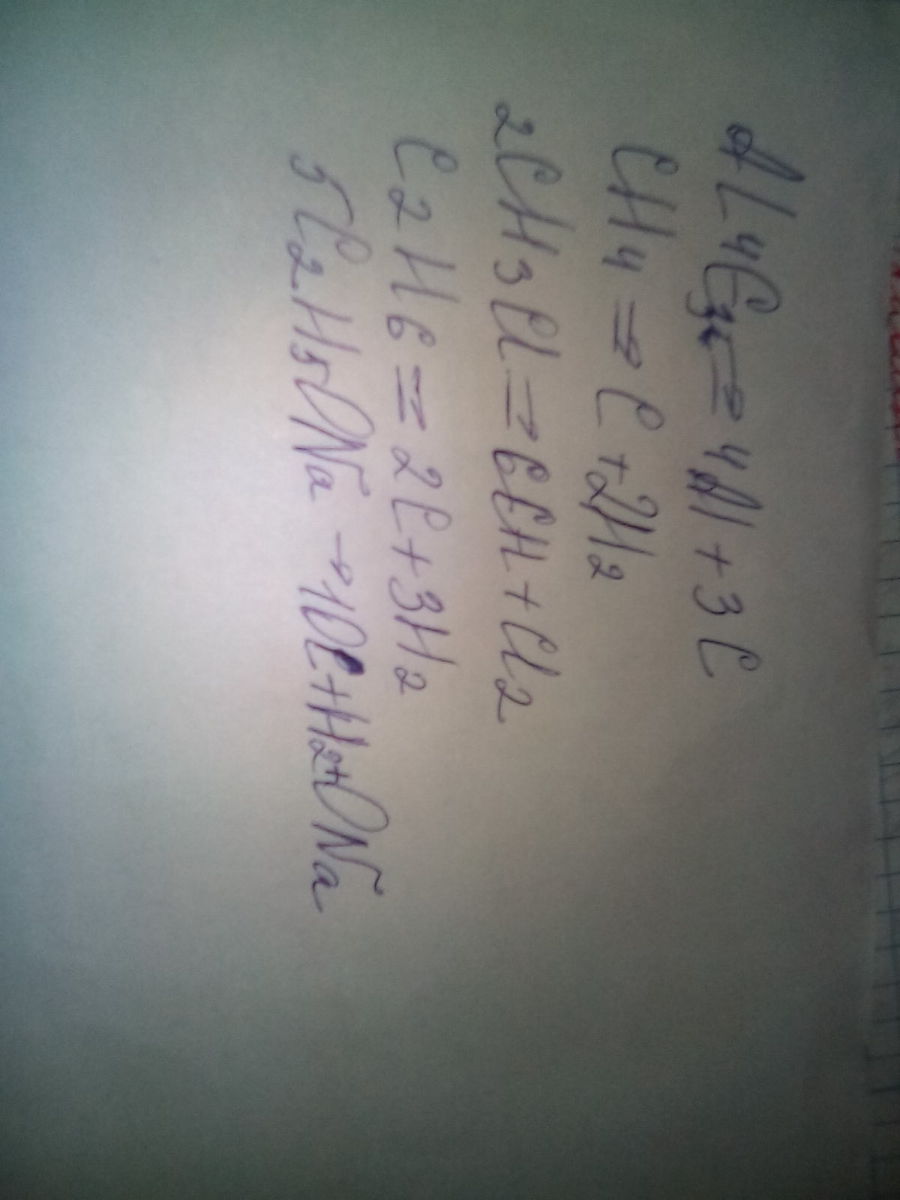 Al4C3 => 4Al + 3C
CH4 => C + 2H2
2CH3Cl => 6CH + Cl2
C2H6 = 2C + 3H2
5C2H5ONa → 10C + H2 + ONa